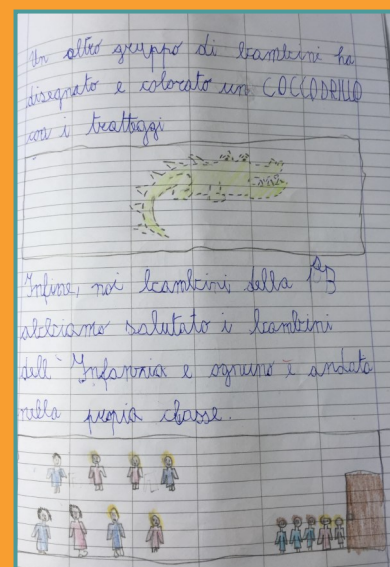 Un altro gruppo di bambini ha
disegnato e colorato un COCCODRILLO
con i tratteggi
Infine, noi bambini della 1ªB
abbiamo salutato i bambini
dell'Infanzia e ognuno è andato
nella propria classe.